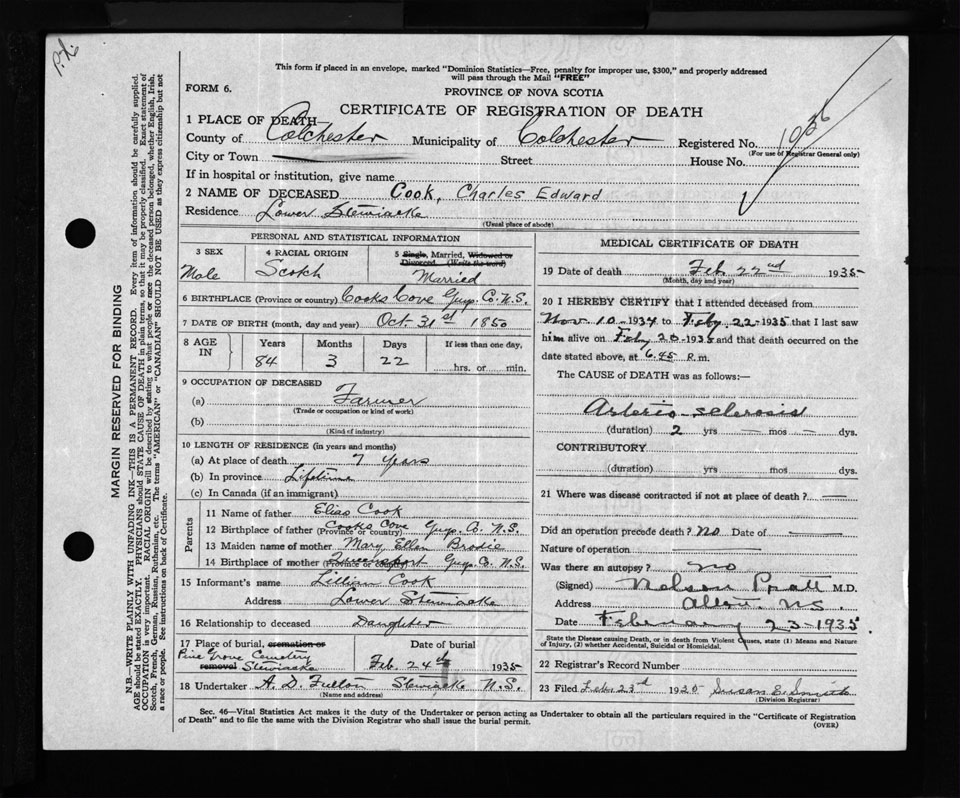 P.h.
This form if placed in an envelope, marked "Dominion Statistics—Free, penalty for improper use, $300," and properly addressed
will pass through the Mail "FREE"
FORM 6.
PROVINCE OF NOVA SCOTIA
CERTIFICATE OF REGISTRATION OF DEATH
1 PLACE OF DEATH
County of Colchester Municipality of Colchester Registered No. 1936
(For use of Registrar General only)
City or Town Street House No.
If in hospital or institution, give name
2 NAME OF DECEASED Cook, Charles Edward
Residence Lower Stewiacke
(Usual place of abode)
PERSONAL AND STATISTICAL INFORMATION
3 SEX 4 RACIAL ORIGIN 5 Single, Married, Widowed or
Divorced. (Write the word)
Male Scotch Married
6 BIRTHPLACE (Province or country) Cooks Cove Guys. Co. N.S.
7 DATE OF BIRTH (month, day and year) Oct. 31st 1850
8 AGE IN Years Months Days If less than one day,
84 3 22 hrs. or min.
9 OCCUPATION OF DECEASED
(a) Farmer
(Trade or occupation or kind of work)
(b)
(Kind of industry)
10 LENGTH OF RESIDENCE (in years and months)
(a) At place of death 7 years
(b) In province Lifetime
(c) In Canada (if an immigrant)
Parents
11 Name of father Elias Cook
12 Birthplace of father (Province or country) Cooks Cove Guys. Co. N.S.
13 Maiden name of mother Mary Ellen Brodie
14 Birthplace of mother (Province or country) Queensport Guys. Co. N.S.
15 Informant's name Lillian Cook
Address Lower Stewiacke
16 Relationship to deceased Daughter
17 Place of burial, cremation or Date of burial
Pine Grove Cemetery
removal Stewiacke Feb. 24th 1935
18 Undertaker A. D. Fulton Stewiacke N.S.
(Name and address)
MEDICAL CERTIFICATE OF DEATH
19 Date of death Feb 22nd 1935
(Month, day and year)
20 I HEREBY CERTIFY that I attended deceased from
Nov 10-1934 to Feby 22-1935 that I last saw
him alive on Feby 20-1935 and that death occurred on the
date stated above, at 6.45 P.m.
The CAUSE OF DEATH was as follows:—
Arterio-sclerosis
(duration) 2 yrs — mos — dys.
CONTRIBUTORY
(duration) yrs mos dys.
21 Where was disease contracted if not at place of death? —
Did an operation precede death? No Date of —
Nature of operation —
Was there an autopsy? no
(Signed) Nelson Pratt M.D.
Address N.S.
Date February 23-1935
State the Disease causing Death, or in death from Violent Causes, state (1) Means and Nature
of Injury, (2) whether Accidental, Suicidal or Homicidal.
22 Registrar's Record Number
23 Filed Feb. 23d 1935 Susan E. Smith
(Division Registrar)
Sec. 46—Vital Statistics Act makes it the duty of the Undertaker or person acting as Undertaker to obtain all the particulars required in the "Certificate of Registration
of Death" and to file the same with the Division Registrar who shall issue the burial permit.
(OVER)
MARGIN RESERVED FOR BINDING
N.B.—WRITE PLAINLY WITH UNFADING INK—THIS IS A PERMANENT RECORD. Every item of information should be carefully supplied.
AGE should be stated EXACTLY. PHYSICIANS should STATE CAUSE OF DEATH in plain terms, so that it may be properly classified. Exact statement of
OCCUPATION is very important. RACIAL ORIGIN will be described by stating to what people or race the deceased person belonged, whether English, Irish,
Scotch, French, German, Russian, Ruthenian, etc. The terms "AMERICAN" or "CANADIAN" SHOULD NOT BE USED as they express citizenship but not
a race or people. See instructions on back of Certificate.